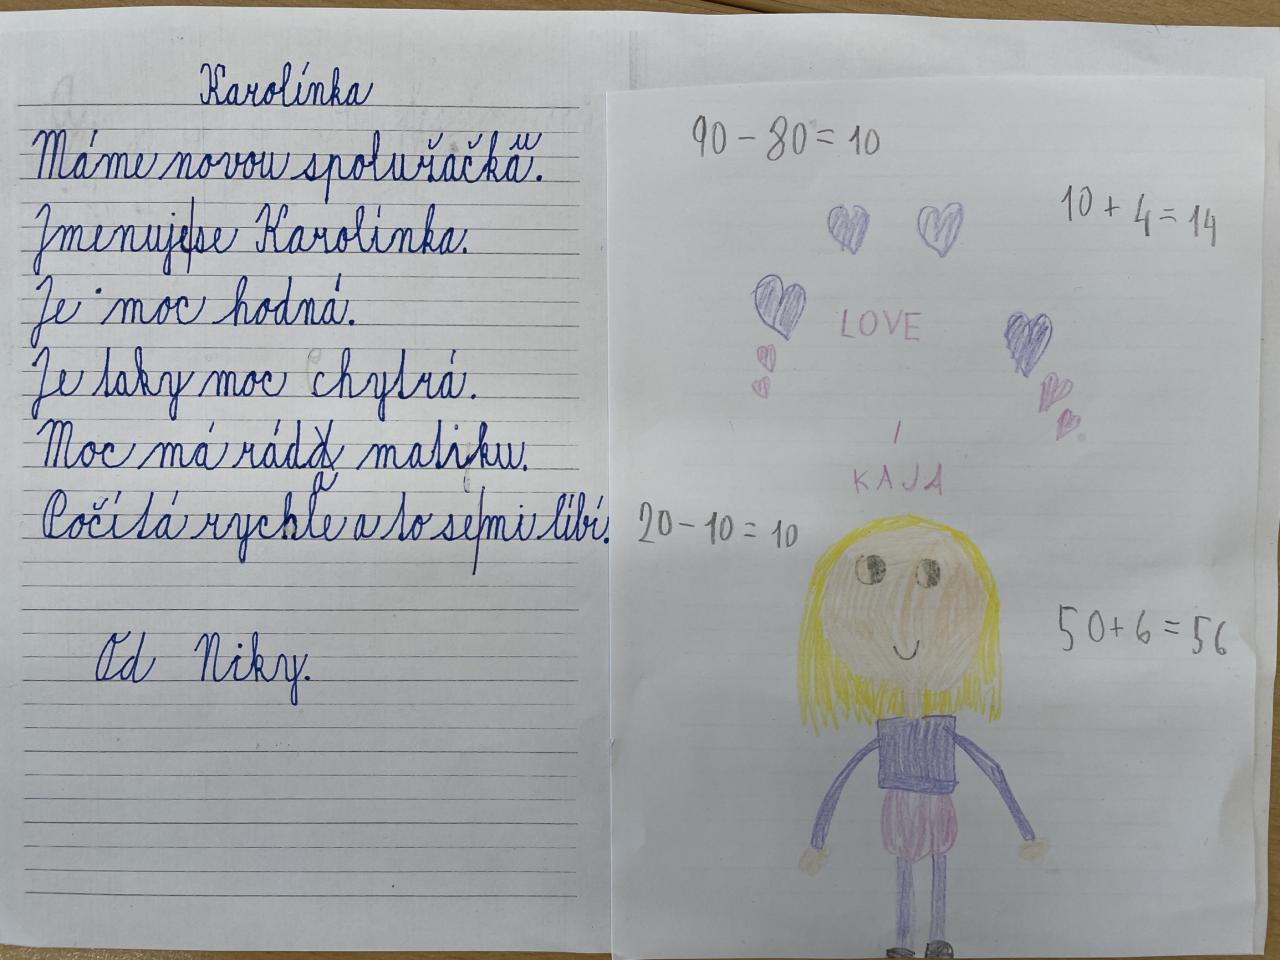 Karolínka
Máme novou spolužačku.
Jmenuje se Karolínka.
Je moc hodná.
Je taky moc chytrá.
Moc má ráda matiku.
Počítá rychle a to se mi líbí.
Od Niky.
90 - 80 = 10
10 + 4 = 14
LOVE
KÁJA
20 - 10 = 10
50 + 6 = 56